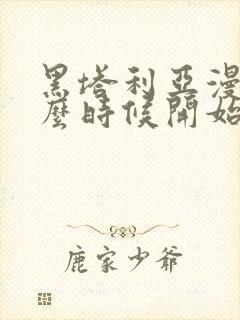 黑塔利亞漫
麼時候開始
鹿家少爺